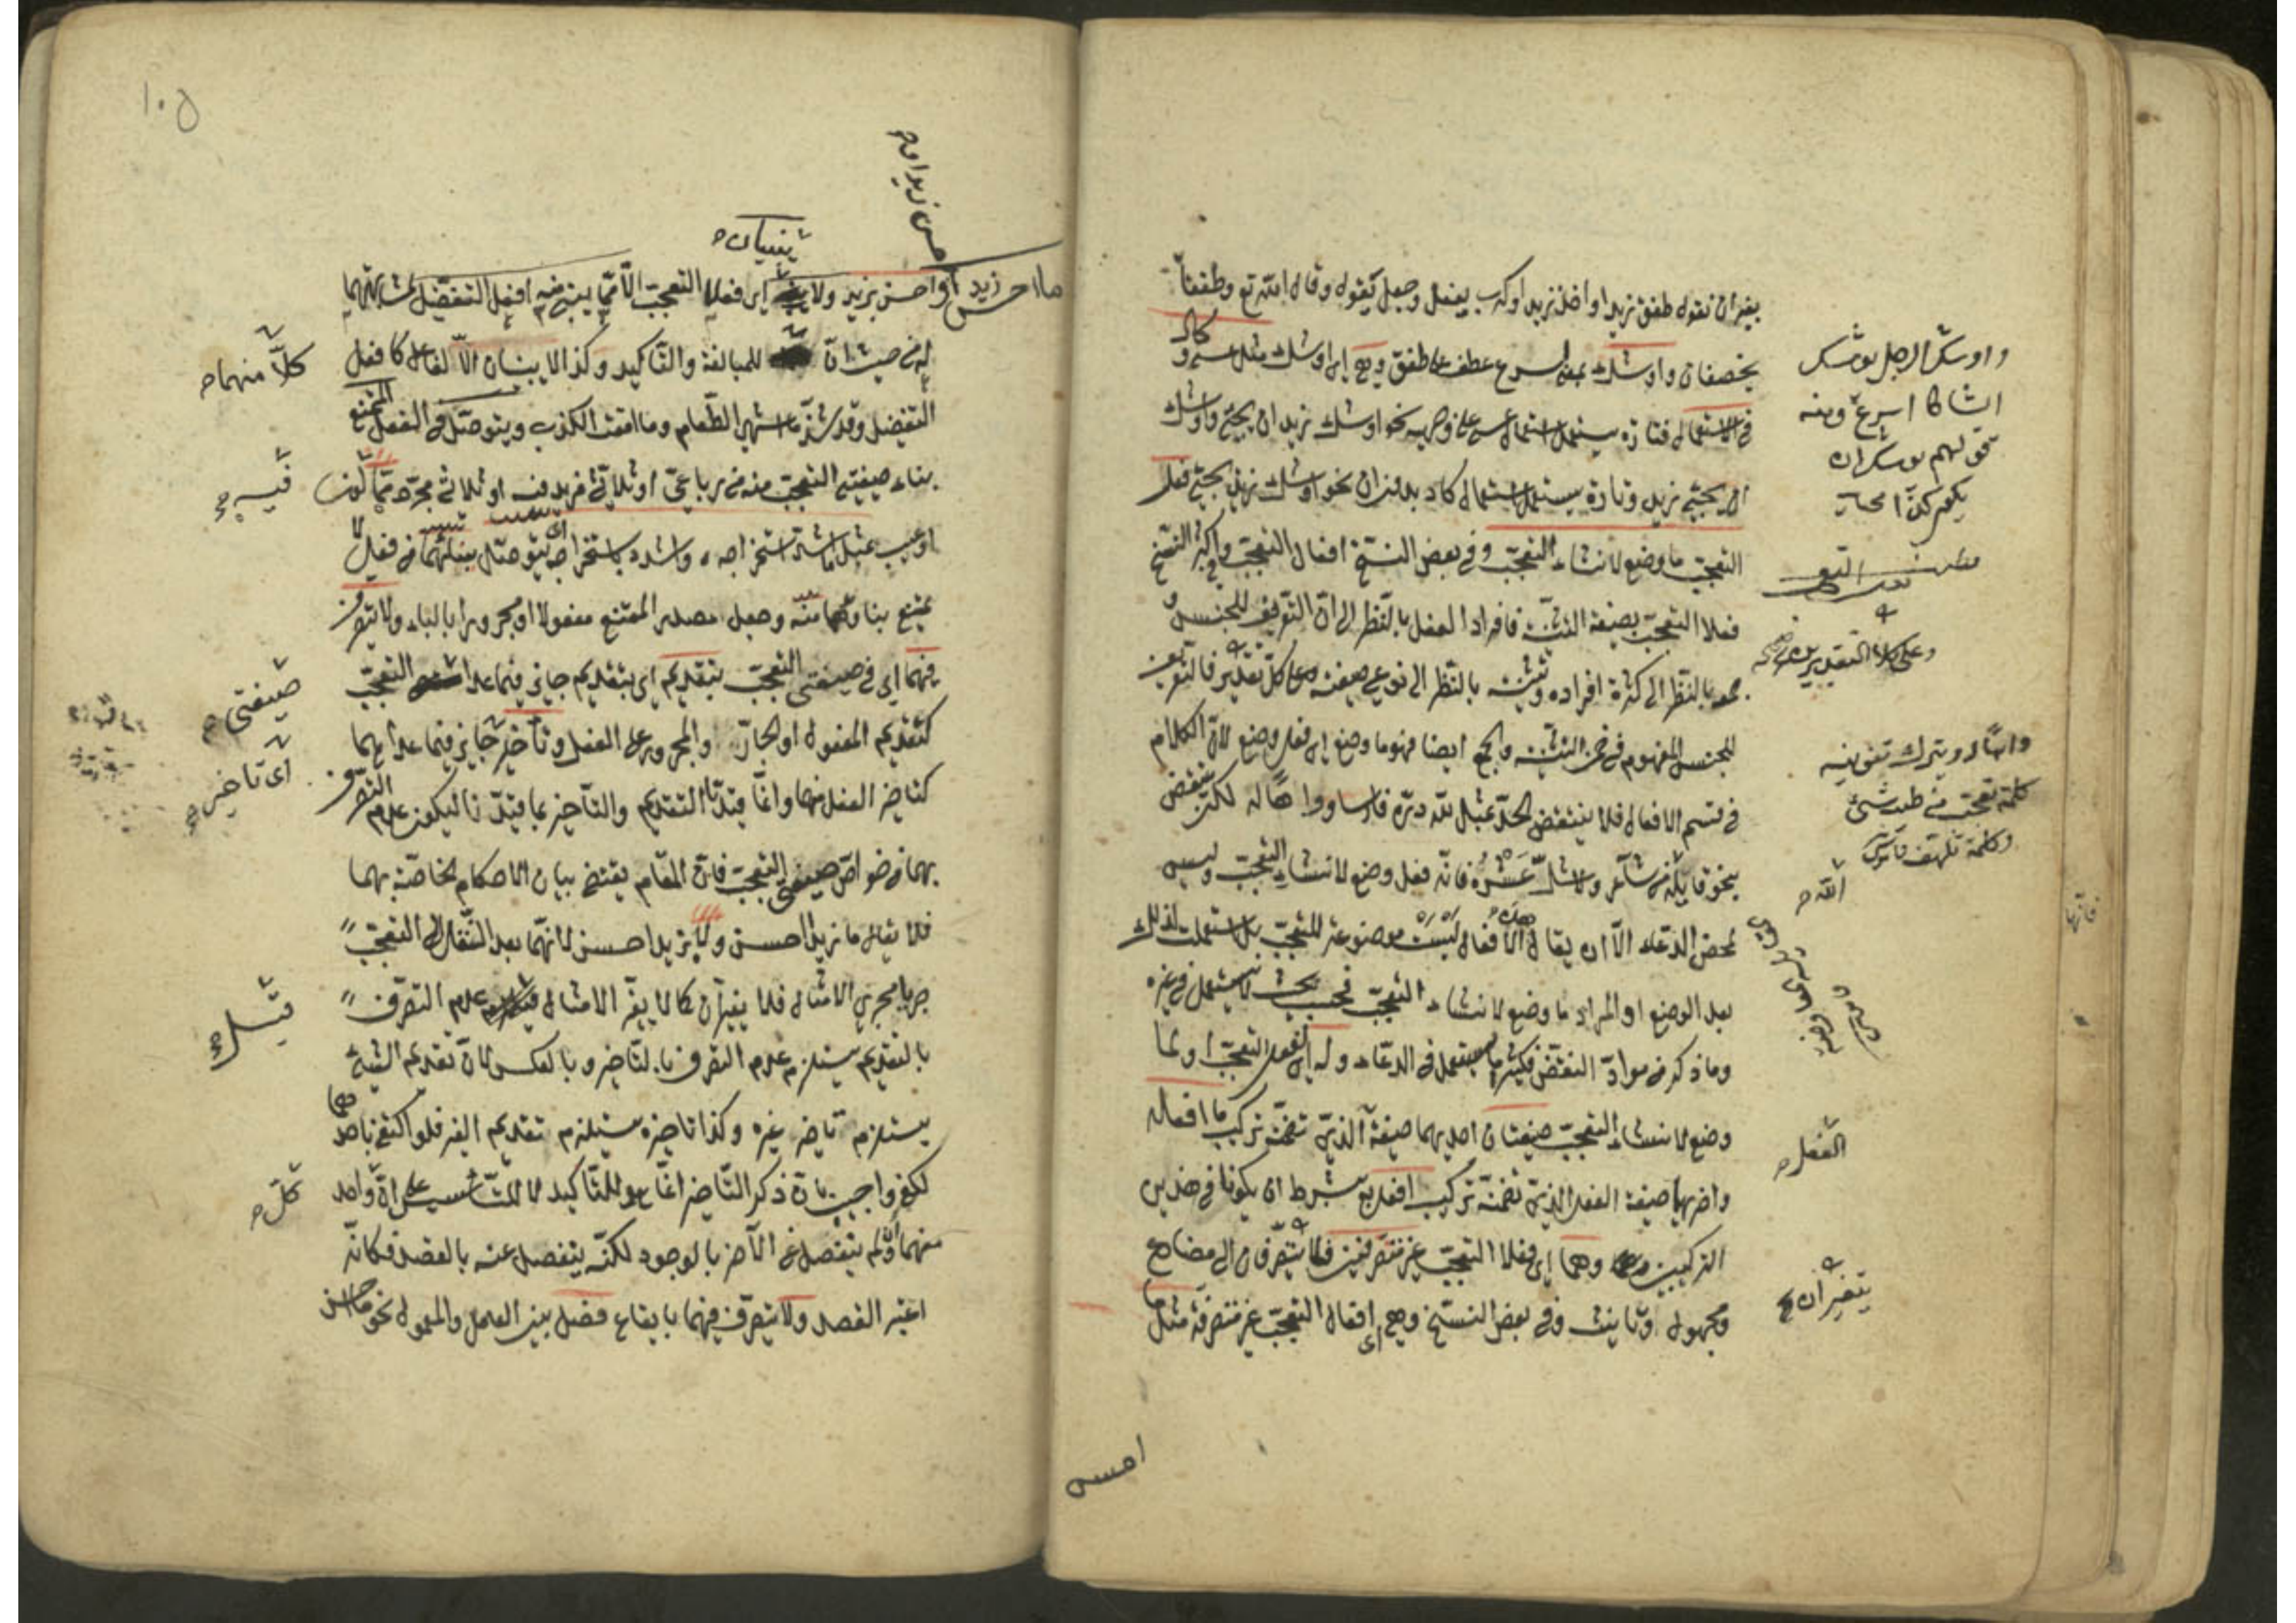 بغير ان تقول طفق زيد او اخذ زيد او كرب يفعل وجعل يقول وقال الله تع وطفقا
يخصفان واوشك بمعنى اسرع عطف على طفق وهي اى اوشك مثل عسى وكاد
في الاستعمال فتارة يستعمل استعمال عسى على وجهيه نحو اوشك زيد ان يجئ واوشك
ان يجئ زيد وتارة يستعمل استعمال كاد بدون ان نحو اوشك زيد يجئ فعل
التعجب ما وضع لانشاء التعجب وفي بعض النسخ افعال التعجب وفي اكثر النسخ
فعلا التعجب بصيغة التثنية فافراد الفعل بالنظر الى ان التعريف للجنس و
جمعه بالنظر الى كثرة افراده وتثنيته بالنظر الى نوعي صيغته وعلى كل تقدير فالتعريف
للجنس المفهوم في ضمن التثنية والجمع ايضا فهو ما وضع اى فعل وضع لان الكلام
في قسم الافعال فلا ينتقض الحد بمثل لله دره فارسا وواها له لكن ينتقض
بنحو قاتله الله من شاعر ولا شل عشره فانه فعل وضع لانشاء التعجب وليس
لمحض الدعاء الا ان يقال هذه الافعال ليست موضوعة للتعجب بل استعملت لذلك
بعد الوضع او المراد ما وضع لانشاء التعجب فحسب بحيث لا يستعمل في غيره
وما ذكر من مواد النقض فكثيرا ما يستعمل في الدعاء وله اى لفعل التعجب او لما
وضع لانشاء التعجب صيغتان احديهما صيغة الذي تضمنه تركيب ما افعله
واخريهما صيغة الفعل الذي تضمنه تركيب افعل به بشرط ان يكونا في هذين
التركيبين وهما اى فعلا التعجب غير متصرفين فلا يتصرفان الى مضارع
ومجهول وتأنيث وفي بعض النسخ وهي اى افعال التعجب غير متصرفة مثل ما
واوشك الرجل يوشك
ايشاكا اسرع ومنه
قولهم يوشك ان
يكون كذا
كلمة تعجب من طيب شئ
وكلمة تلهف
الله
الفعل
يتغيران
احسن
١٠٥
يبنيان
ما احسن زيدا واحسن بزيد ولا اى فعلا التعجب الا مما يبنى منه افعل التفضيل لمشابهتهما
له من حيث ان للمبالغة والتأكيد وكذا لا يبنيان الا للفاعل كافعل
التفضيل وقد شذ ما اشهى الطعام وما امقت الكذب ويتوصل في الفعل الممتنع
بناء صيغتي التعجب منه من رباعي او ثلاثي مزيد فيه او ثلاثي مجرد مما لون
او عيب بمثل ما اشد استخراجه واشدد باستخراجه اى يتوصل بمثلهما من فعل لا
يمتنع بناؤهما منه وجعل مصدر الممتنع مفعولا او مجرورا بالباء ولا يتصرف
فيهما اى في صيغتي التعجب بتقديم اى بتقديم جائز فيما عدا التعجب
كتقديم المفعول او الجار والمجرور على الفعل وتأخير جائز فيما عداهما
كتأخير الفعل عنهما وانما قيدنا التقديم والتأخير بما قيدنا ليكون عدم التصرف
بهما من خواص صيغتي التعجب فان المقام يقتضي بيان الاحكام الخاصة بهما
فلا يقال ما زيدا احسن ولا بزيد احسن لانهما بعد النقل الى التعجب
جريا مجرى الامثال فلا يغيران كما لا يغير الامثال عدم التصرف
بالتقديم يستلزم عدم التصرف بالتأخير وبالعكس لان تقديم الشئ
يستلزم تأخير غيره وكذا تأخيره يستلزم تقديم الغير فلو اكتفى باحدهما
لكفى واجيب بان ذكر التأخير انما هو للتأكيد لا للتأسيس على ان واحد
منهما وان لم ينفصل عن الآخر بالوجود لكنه ينفصل عنه بالقصد فكانه
اعتبر القصد ولا يتصرف فيهما بايقاع فصل بين العامل والمعمول نحو ما احسن
كلا منهما
صيغتي
اى تأخير
كل